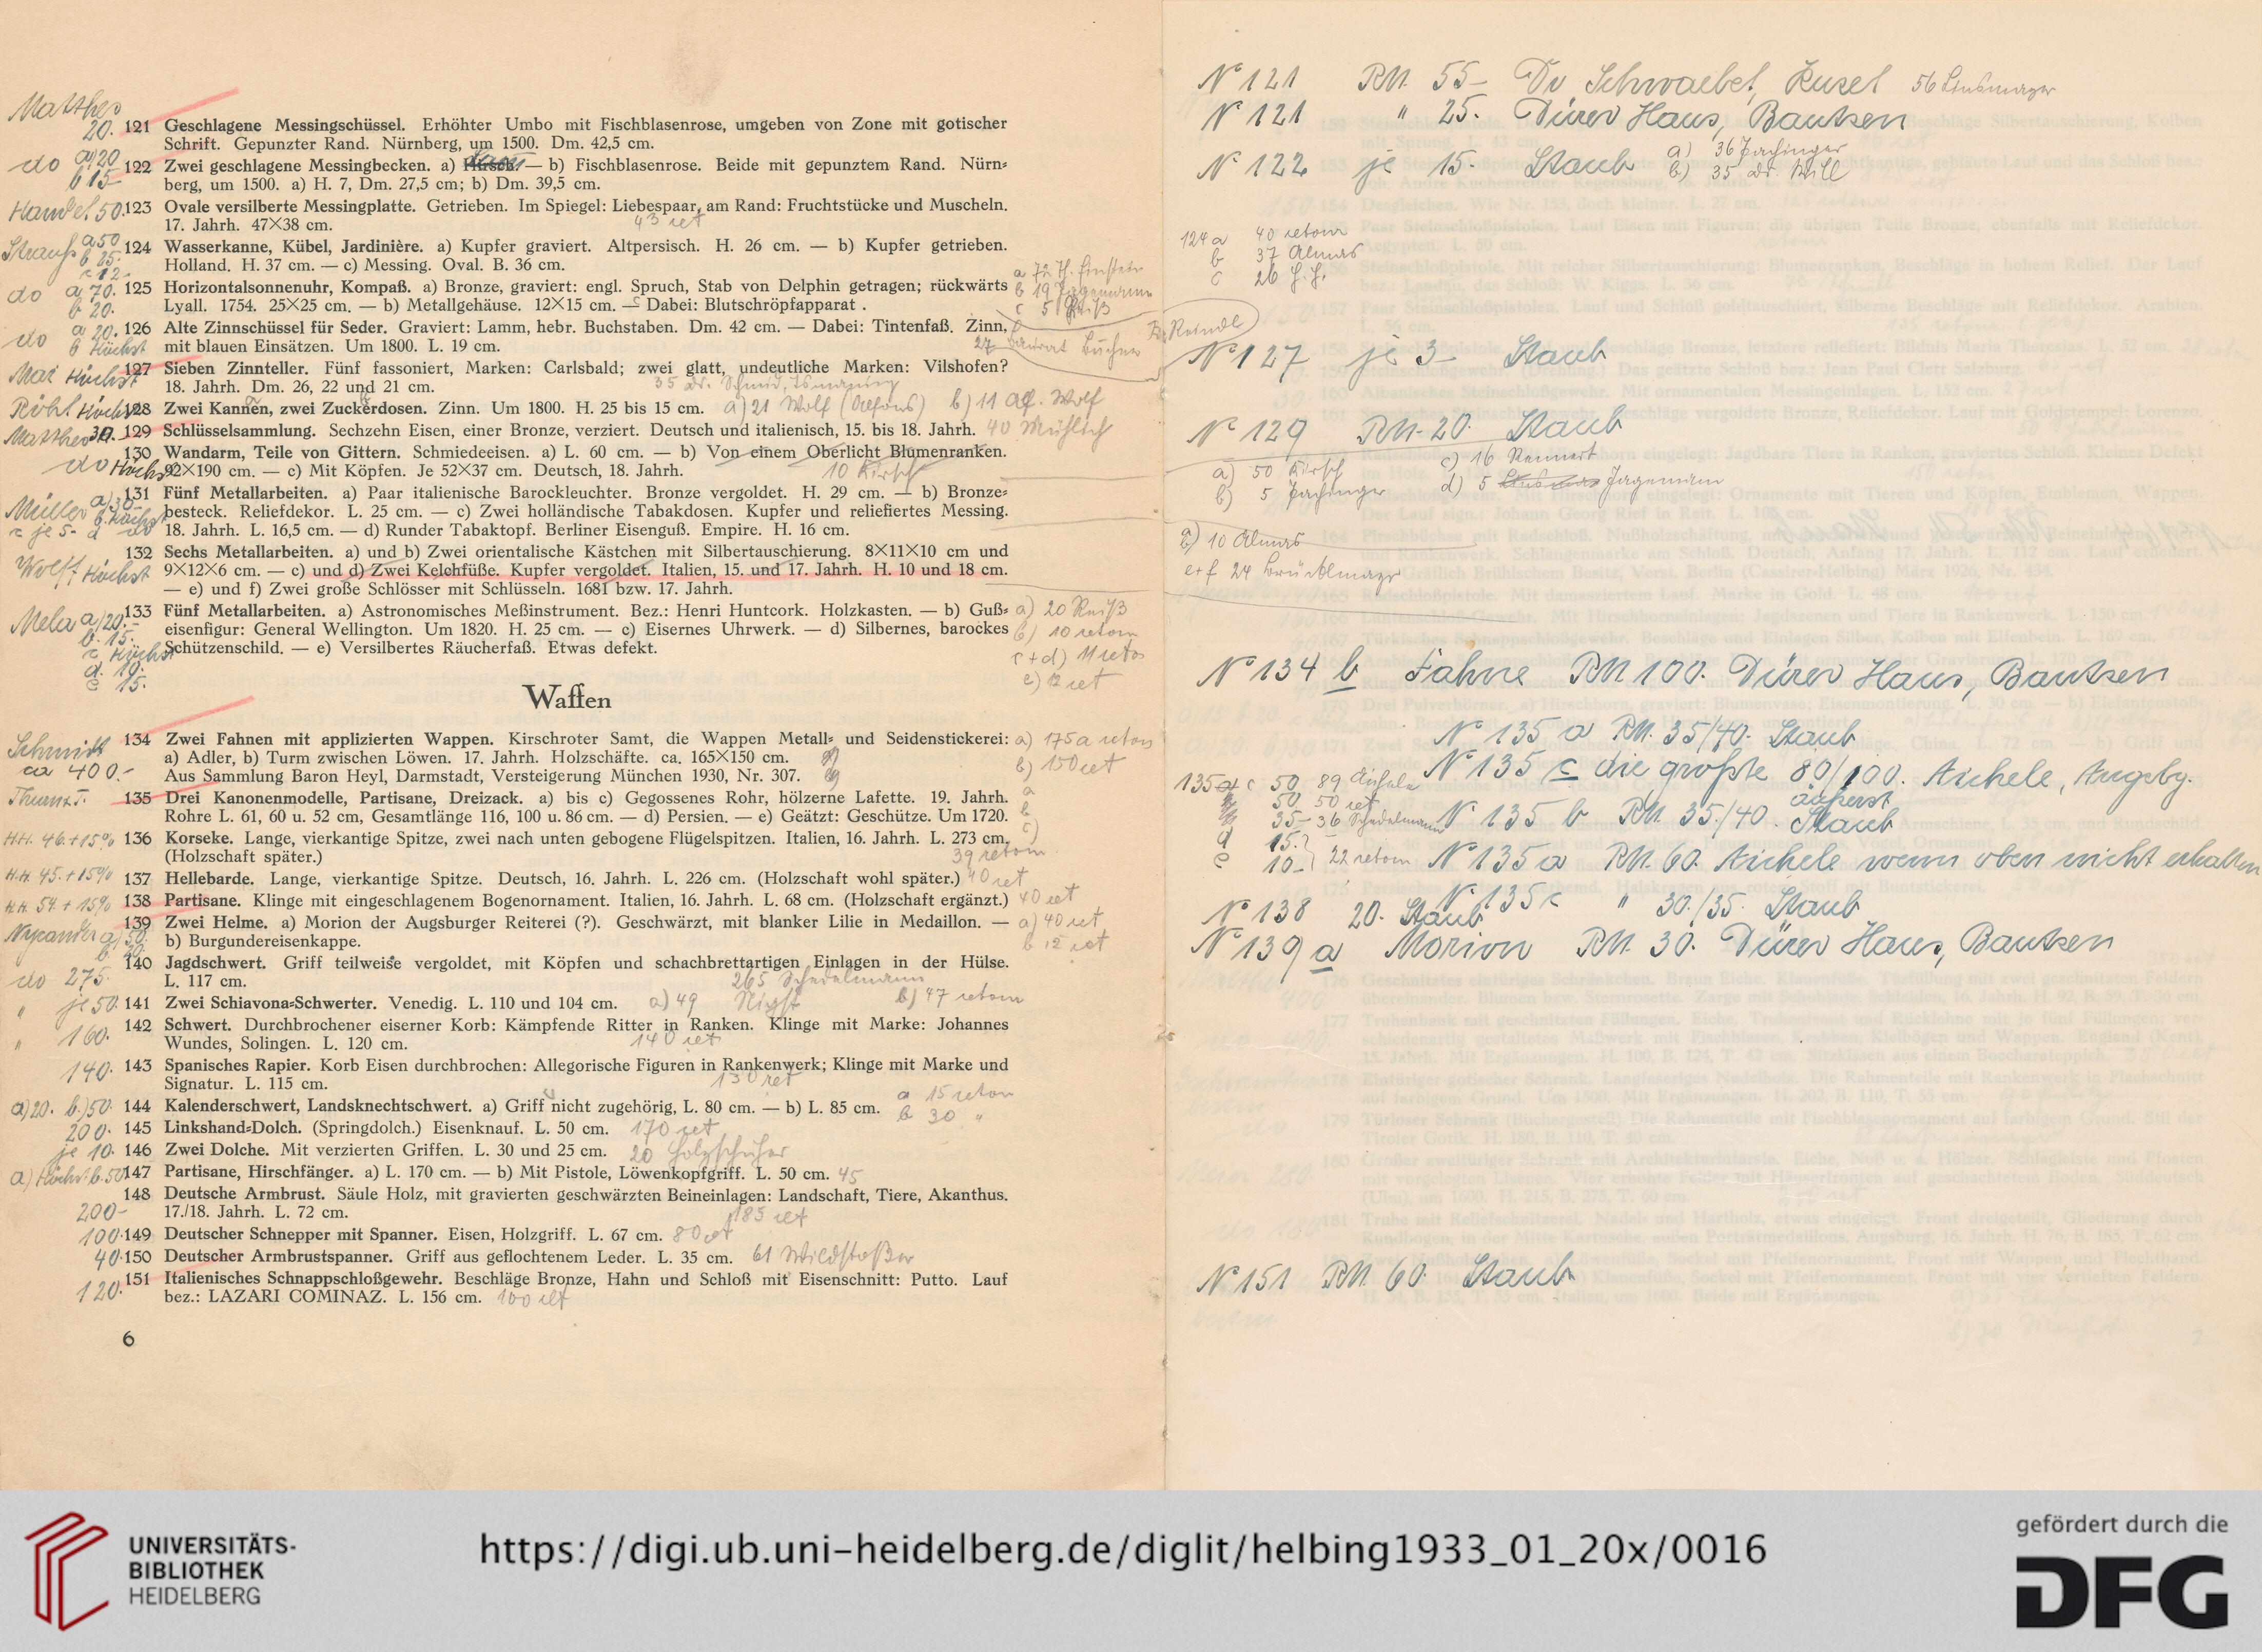 Matthes
20. 121 Geschlagene Messingschüssel. Erhöhter Umbo mit Fischblasenrose, umgeben von Zone mit gotischer
Schrift. Gepunzter Rand. Nürnberg, um 1500. Dm. 42,5 cm.
do a) 20 b 15 122 Zwei geschlagene Messingbecken. a) — b) Fischblasenrose. Beide mit gepunztem Rand. Nürn=
berg, um 1500. a) H. 7, Dm. 27,5 cm; b) Dm. 39,5 cm.
50. 123 Ovale versilberte Messingplatte. Getrieben. Im Spiegel: Liebespaar, am Rand: Fruchtstücke und Muscheln.
17. Jahrh. 47×38 cm. 43 ret
a 50 b 25. c 12. 124 Wasserkanne, Kübel, Jardinière. a) Kupfer graviert. Altpersisch. H. 26 cm. — b) Kupfer getrieben.
Holland. H. 37 cm. — c) Messing. Oval. B. 36 cm.
do a 70. b 20. 125 Horizontalsonnenuhr, Kompaß. a) Bronze, graviert: engl. Spruch, Stab von Delphin getragen; rückwärts
Lyall. 1754. 25×25 cm. — b) Metallgehäuse. 12×15 cm. — c Dabei: Blutschröpfapparat .
do a 20. b Höchst 126 Alte Zinnschüssel für Seder. Graviert: Lamm, hebr. Buchstaben. Dm. 42 cm. — Dabei: Tintenfaß. Zinn,
mit blauen Einsätzen. Um 1800. L. 19 cm.
Mai Höchst 127 Sieben Zinnteller. Fünf fassoniert, Marken: Carlsbald; zwei glatt, undeutliche Marken: Vilshofen?
18. Jahrh. Dm. 26, 22 und 21 cm. 35 Dr. Schmid, Ismaning
Höchst 128 Zwei Kannen, zwei Zuckerdosen. Zinn. Um 1800. H. 25 bis 15 cm. a) 21 Wolf (Alfons) b) 11 Alf. Wolf
Matthes 30. 129 Schlüsselsammlung. Sechzehn Eisen, einer Bronze, verziert. Deutsch und italienisch, 15. bis 18. Jahrh. 40
do Höchst 130 Wandarm, Teile von Gittern. Schmiedeeisen. a) L. 60 cm. — b) Von einem Oberlicht Blumenranken.
92×190 cm. — c) Mit Köpfen. Je 52×37 cm. Deutsch, 18. Jahrh. 10 Kirsch
Müller 131 Fünf Metallarbeiten. a) Paar italienische Barockleuchter. Bronze vergoldet. H. 29 cm. — b) Bronze=
besteck. Reliefdekor. L. 25 cm. — c) Zwei holländische Tabakdosen. Kupfer und reliefiertes Messing.
c je 5- d do 18. Jahrh. L. 16,5 cm. — d) Runder Tabaktopf. Berliner Eisenguß. Empire. H. 16 cm.
132 Sechs Metallarbeiten. a) und b) Zwei orientalische Kästchen mit Silbertauschierung. 8×11×10 cm und
Wolff Höchst 9×12×6 cm. — c) und d) Zwei Kelchfüße. Kupfer vergoldet. Italien, 15. und 17. Jahrh. H. 10 und 18 cm.
— e) und f) Zwei große Schlösser mit Schlüsseln. 1681 bzw. 17. Jahrh.
133 Fünf Metallarbeiten. a) Astronomisches Meßinstrument. Bez.: Henri Huntcork. Holzkasten. — b) Guß= a) 20 Reiß
eisenfigur: General Wellington. Um 1820. H. 25 cm. — c) Eisernes Uhrwerk. — d) Silbernes, barockes b) 10 retour
Schützenschild. — e) Versilbertes Räucherfaß. Etwas defekt. c+d) 11 retour
e) 12 ret
Waffen
Schmidt ca 400.- 134 Zwei Fahnen mit applizierten Wappen. Kirschroter Samt, die Wappen Metall= und Seidenstickerei: a) 175 retour
a) Adler, b) Turm zwischen Löwen. 17. Jahrh. Holzschäfte. ca. 165×150 cm. b) 150 ret
Aus Sammlung Baron Heyl, Darmstadt, Versteigerung München 1930, Nr. 307.
135 Drei Kanonenmodelle, Partisane, Dreizack. a) bis c) Gegossenes Rohr, hölzerne Lafette. 19. Jahrh.
Rohre L. 61, 60 u. 52 cm, Gesamtlänge 116, 100 u. 86 cm. — d) Persien. — e) Geätzt: Geschütze. Um 1720.
H.H. 46.+15% 136 Korseke. Lange, vierkantige Spitze, zwei nach unten gebogene Flügelspitzen. Italien, 16. Jahrh. L. 273 cm.
(Holzschaft später.) 39 retour
H.H. 45.+15% 137 Hellebarde. Lange, vierkantige Spitze. Deutsch, 16. Jahrh. L. 226 cm. (Holzschaft wohl später.) 40 ret
H.H. 54.+15% 138 Partisane. Klinge mit eingeschlagenem Bogenornament. Italien, 16. Jahrh. L. 68 cm. (Holzschaft ergänzt.) 40 ret
139 Zwei Helme. a) Morion der Augsburger Reiterei (?). Geschwärzt, mit blanker Lilie in Medaillon. — a) 40 ret
b) Burgundereisenkappe. b 12 ret
140 Jagdschwert. Griff teilweise vergoldet, mit Köpfen und schachbrettartigen Einlagen in der Hülse.
do 275. L. 117 cm. 265 Schedelmann
" je 50. 141 Zwei Schiavona=Schwerter. Venedig. L. 110 und 104 cm. a) 49 b) 47 retour
142 Schwert. Durchbrochener eiserner Korb: Kämpfende Ritter in Ranken. Klinge mit Marke: Johannes
" 160. Wundes, Solingen. L. 120 cm. 140 ret
140. 143 Spanisches Rapier. Korb Eisen durchbrochen: Allegorische Figuren in Rankenwerk; Klinge mit Marke und
Signatur. L. 115 cm. 130 ret
a) 20. b.) 50. 144 Kalenderschwert, Landsknechtschwert. a) Griff nicht zugehörig, L. 80 cm. — b) L. 85 cm. a 15 retour b 30 "
200. 145 Linkshand=Dolch. (Springdolch.) Eisenknauf. L. 50 cm. 170 ret
je 10. 146 Zwei Dolche. Mit verzierten Griffen. L. 30 und 25 cm. 20 Holzschuher
a) Höchst b. 50 147 Partisane, Hirschfänger. a) L. 170 cm. — b) Mit Pistole, Löwenkopfgriff. L. 50 cm. 45
148 Deutsche Armbrust. Säule Holz, mit gravierten geschwärzten Beineinlagen: Landschaft, Tiere, Akanthus.
200- 17./18. Jahrh. L. 72 cm. 185 ret
100. 149 Deutscher Schnepper mit Spanner. Eisen, Holzgriff. L. 67 cm. 80 ret
40. 150 Deutscher Armbrustspanner. Griff aus geflochtenem Leder. L. 35 cm. 61
151 Italienisches Schnappschloßgewehr. Beschläge Bronze, Hahn und Schloß mit Eisenschnitt: Putto. Lauf
120. bez.: LAZARI COMINAZ. L. 156 cm. 100 ret
6
No 121 RM. 55- Dr Schwaebel, Kusel 56
No 121 " 25. Dürer Haus, Bautzen
No 122 je 15. Staub a) 36 Pachinger
b) 35 Dr. Will
124 a 40 retour
b 37 Almas
c 26
No 127 je 3- Staub
No 129 RM. 20. Staub
a) 50 Kirsch c) 16 Rennert
b) 5 Pachinger d) 5 Jagemann
10 Almas
e+f 24 Brücklmayr
No 134 b Fahne RM 100. Dürer Haus, Bautzen
No 135 a RM. 35/40. Staub
No 135 c die größte 80/100. Aichele, Augsbg.
äußerst
No 135 b RM. 35./40. Staub
No 135 a RM. 60. Aichele wenn oben nicht erhalten
No 135 c " 30./35. Staub
No 138 20. Staub
No 139 a Morion RM. 30. Dürer Haus, Bautzen
No 151 RM. 60. Staub
UNIVERSITÄTS-
BIBLIOTHEK
HEIDELBERG
https://digi.ub.uni-heidelberg.de/diglit/helbing1933_01_20x/0016
gefördert durch die
DFG